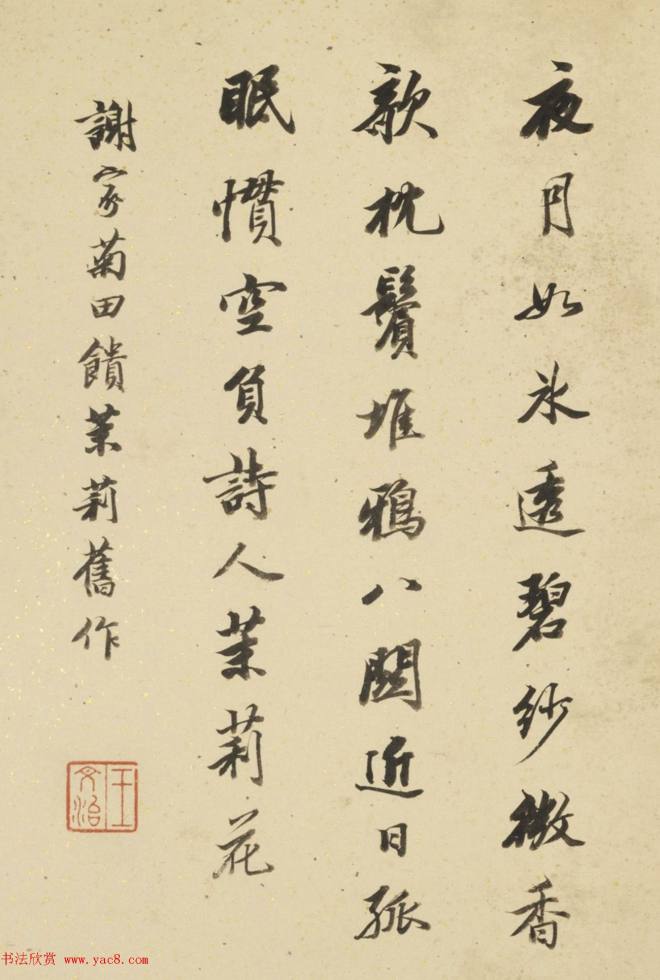 夜月如氷透碧紗微香
欹枕鬢堆鴉八關近日孤
眠慣空負詩人茉莉花
謝家菊田饋茉莉舊作
王文治
书法欣赏 www.yac8.com